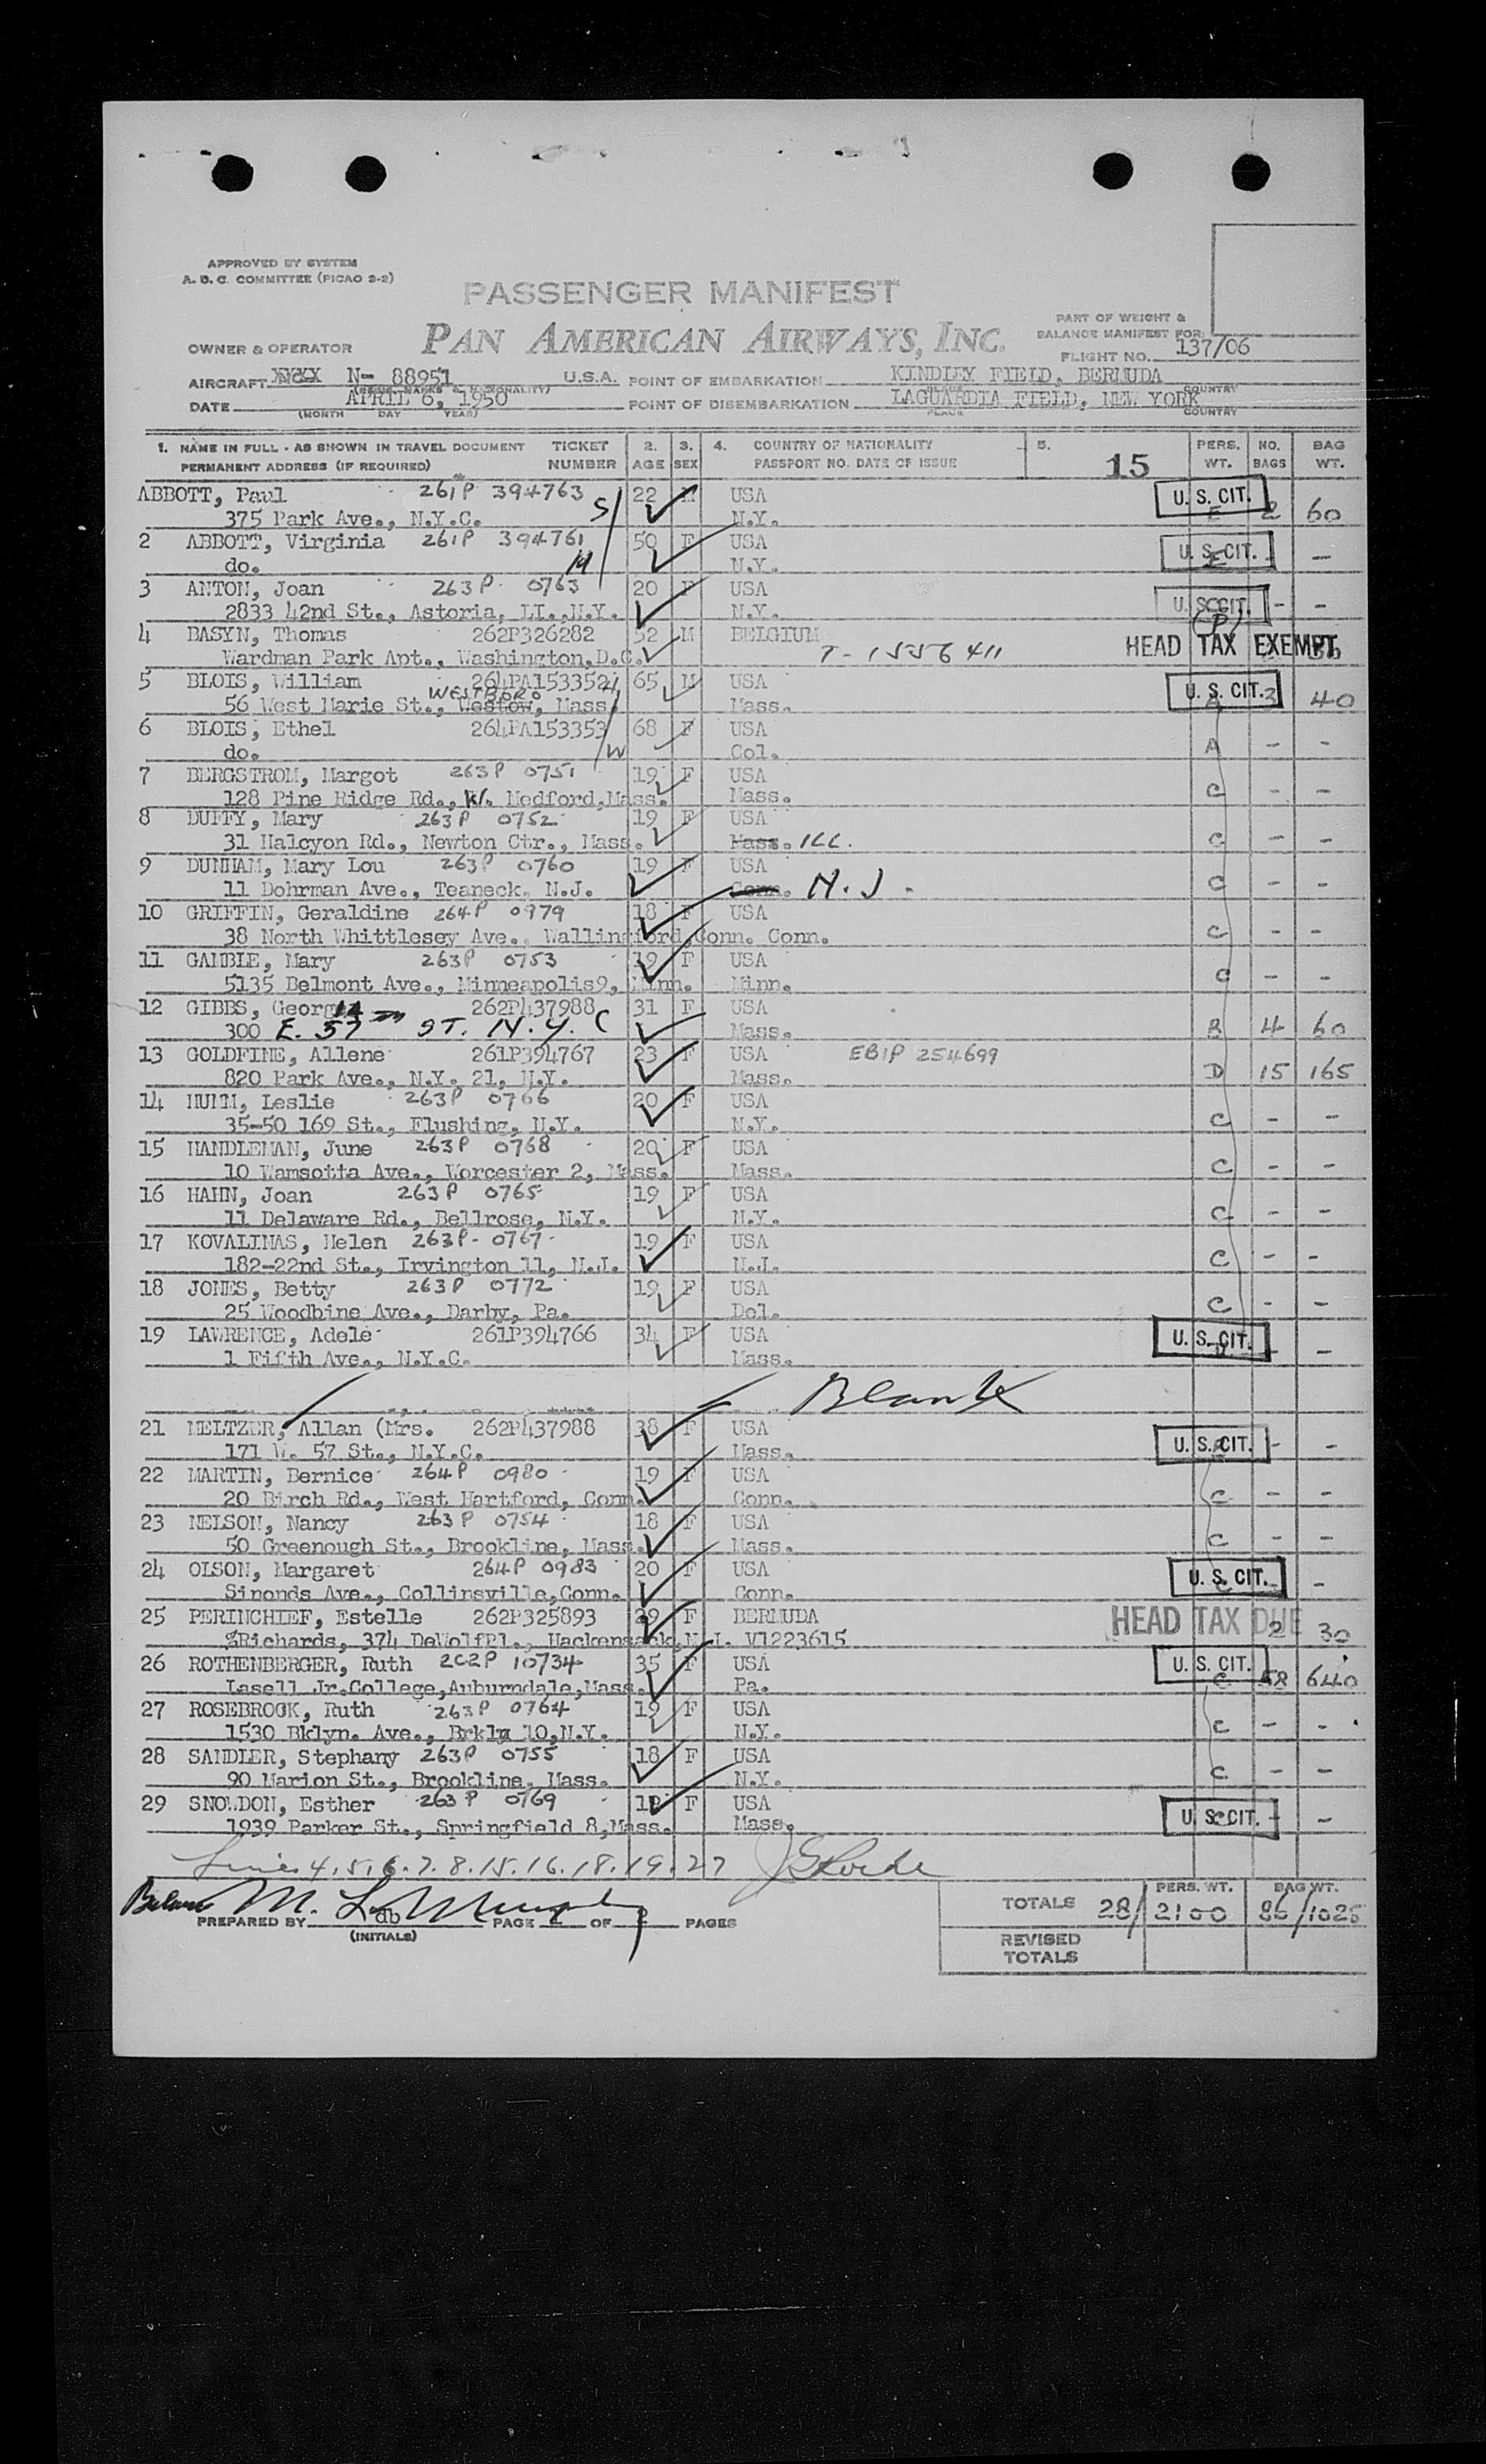 APPROVED BY SYSTEM
A. D. C. COMMITTEE (PICAO 3-2)
PASSENGER MANIFEST
OWNER & OPERATOR PAN AMERICAN AIRWAYS, INC.
PART OF WEIGHT &
BALANCE MANIFEST FOR:
FLIGHT NO. 137/06
AIRCRAFT N- 88951 U.S.A. POINT OF EMBARKATION KINDLEY FIELD, BERMUDA
DATE APRIL 6, 1950 POINT OF DISEMBARKATION LAGUARDIA FIELD, NEW YORK
(MONTH DAY YEAR) PLACE COUNTRY
1. NAME IN FULL - AS SHOWN IN TRAVEL DOCUMENT TICKET 2. 3. 4. COUNTRY OF NATIONALITY 5. PERS. NO. BAG
PERMANENT ADDRESS (IF REQUIRED) NUMBER AGE SEX PASSPORT NO. DATE OF ISSUE 15 WT. BAGS WT.
ABBOTT, Paul 261P 394763 22 M USA U. S. CIT.
375 Park Ave., N.Y.C. S N.Y. E 2 60
2 ABBOTT, Virginia 261P 394761 50 F USA U. S. CIT.
do. M N.Y. E - —
3 ANTON, Joan 263P 0763 20 F USA
2833 42nd St., Astoria, LI., N.Y. N.Y. U. S. CIT. C - -
4 BASYN, Thomas 262P326282 52 M BELGIUM (P) HEAD TAX EXEMPT
Wardman Park Apt., Washington, D.C. T-1556411
5 BLOIS, William 264PA153352 65 M USA U. S. CIT.
WESTBORO
56 West Marie St., Westow, Mass. Mass. A 3 40
6 BLOIS, Ethel 264PA153353 68 F USA
do. W Col. A - -
7 BERGSTROM, Margot 263P 0751 19 F USA
128 Pine Ridge Rd., W. Medford, Mass. Mass. C - -
8 DUFFY, Mary 263P 0752 19 F USA
31 Halcyon Rd., Newton Ctr., Mass. Mass. ILL. C - -
9 DUNHAM, Mary Lou 263P 0760 19 F USA
11 Dohrman Ave., Teaneck, N.J. Conn. N.J. C - -
10 GRIFFIN, Geraldine 264P 0979 18 F USA
38 North Whittlesey Ave., Wallingford, Conn. Conn. C - -
11 GAMBLE, Mary 263P 0753 19 F USA
5135 Belmont Ave., Minneapolis9, Minn. Minn. C - -
12 GIBBS, Georgia 262P437988 31 F USA
300 E. 57 TH ST. N.Y. C Mass. B 4 60
13 GOLDFINE, Allene 261P394767 23 F USA EBIP 254699
820 Park Ave., N.Y. 21, N.Y. Mass. D 15 165
14 HUHM, Leslie 263P 0766 20 F USA
35-50 169 St., Flushing, N.Y. N.Y. C - -
15 HANDLEMAN, June 263P 0768 20 F USA
10 Wamsotta Ave., Worcester 2, Mass. Mass. C - -
16 HAHN, Joan 263P 0765 19 F USA
11 Delaware Rd., Bellrose, N.Y. N.Y. C - -
17 KOVALINAS, Helen 263P- 0767 19 F USA
182-22nd St., Irvington 11, N.J. N.J. C - -
18 JONES, Betty 263P 0772 19 F USA
25 Woodbine Ave., Darby, Pa. Del. C - -
19 LAWRENCE, Adele 261P394766 34 F USA U. S. CIT.
1 Fifth Ave., N.Y.C. Mass. - -
Blank
21 MELTZER, Allan (Mrs. 262P437988 38 F USA
171 W. 57 St., N.Y.C. Mass. U. S. CIT. - -
22 MARTIN, Bernice 264P 0980 19 F USA
20 Birch Rd., West Hartford, Conn. Conn. C - -
23 NELSON, Nancy 263P 0754 18 F USA
50 Greenough St., Brookline, Mass. Mass. C - -
24 OLSON, Margaret 264P 0983 20 F USA
Simonds Ave., Collinsville, Conn. Conn. U. S. CIT. - -
25 PERINCHIEF, Estelle 262P325893 29 F BERMUDA HEAD TAX DUE
%Richards, 374 DeWolfPl., Hackensack, N.J. V1223615 2 30
26 ROTHENBERGER, Ruth 2C2P 10734 35 F USA U. S. CIT.
Lasell Jr.College, Auburndale, Mass. Pa. C 58 640
27 ROSEBROOK, Ruth 263P 0764 19 F USA
1530 Bklyn. Ave., Brkln 10, N.Y. N.Y. C - -
28 SANDLER, Stephany 263P 0755 18 F USA
90 Marion St., Brookline, Mass. N.Y. C - -
29 SNOWDON, Esther 263P 0769 19 F USA
1939 Parker St., Springfield 8, Mass. Mass. U. S. CIT. C - -
Lines 4.5.6.7.8.15.16.18.19.27
PREPARED BY db PAGE OF 2 PAGES
(INITIALS)
PERS. WT. BAG WT.
TOTALS 28/ 2100 86/1025
REVISED
TOTALS